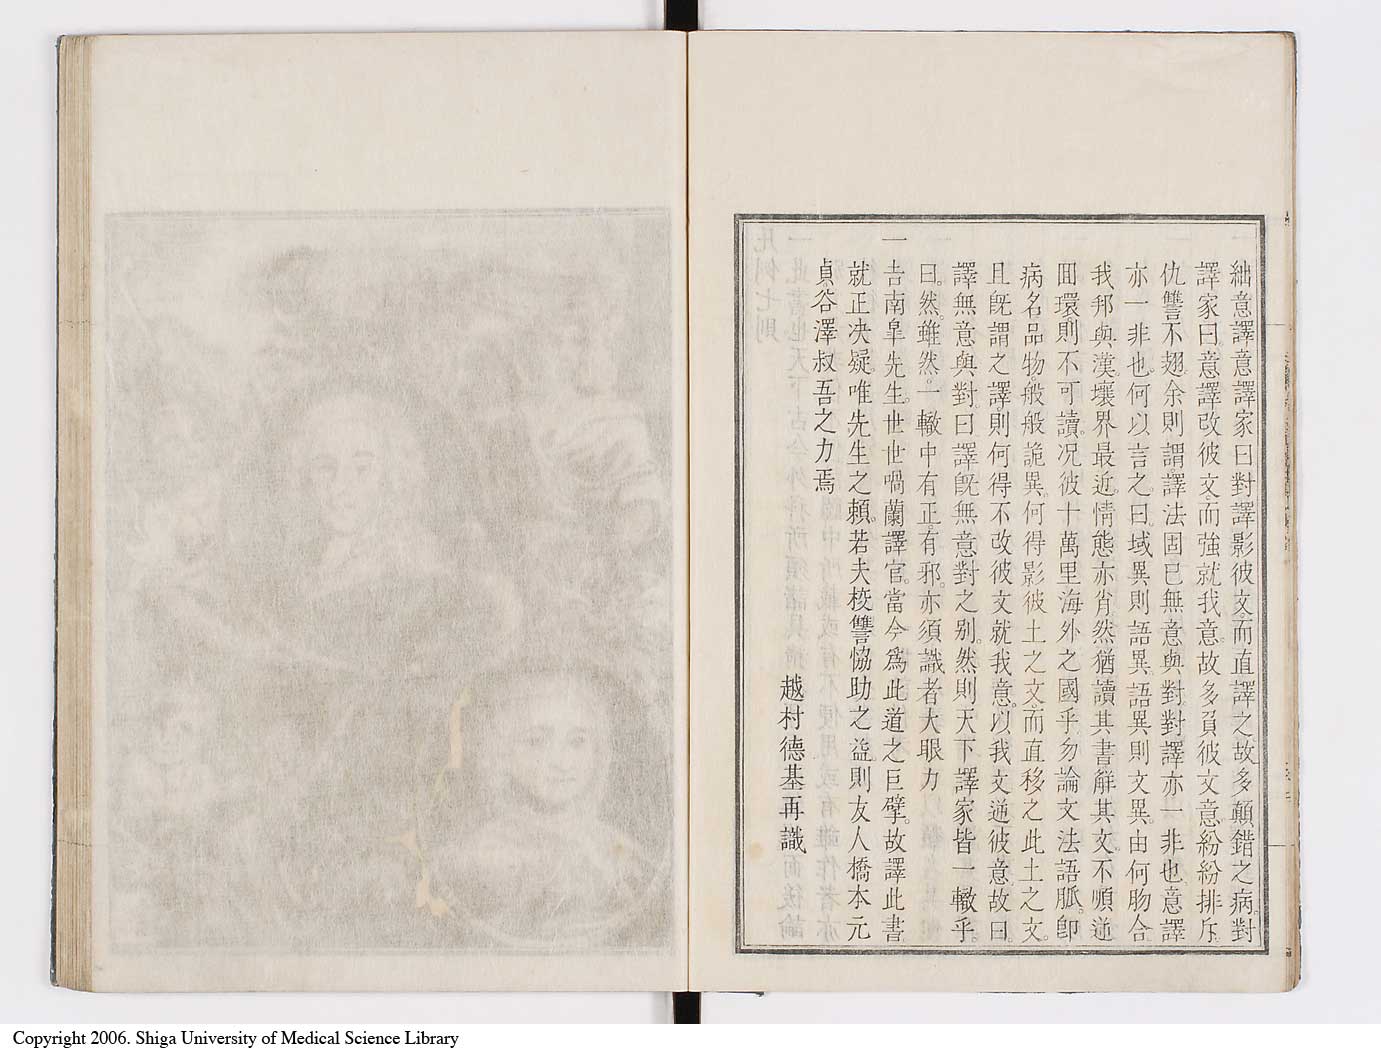 絀意譯意譯家曰對譯影彼文而直譯之故多顛錯之病對
譯家曰意譯改彼文而強就我意故多負彼文意紛紛排斥
仇讐不翅余則謂譯法固已無意與對對譯亦一非也意譯
亦一非也何以言之曰域異則語異語異則文異由何吻合
我邦與漢壤界最近情態亦肖然猶讀其書解其文不順逆
回環則不可讀况彼十萬里海外之國乎勿論文法語脈即
病名品物般般詭異何得影彼土之文而直移之此土之文
且既謂之譯則何得不改彼文就我意以我文逆彼意故曰
譯無意與對曰譯既無意對之别然則天下譯家皆一轍乎
曰然雖然一轍中有正有邪亦須識者大眼力
一 吉南皐先生世世喎蘭譯官當今爲此道之巨擘故譯此書
就正决疑唯先生之賴若夫挍讐恊助之益則友人橋本元
貞谷澤叔吾之力焉
越村德基再識
Copyright 2006. Shiga University of Medical Science Library